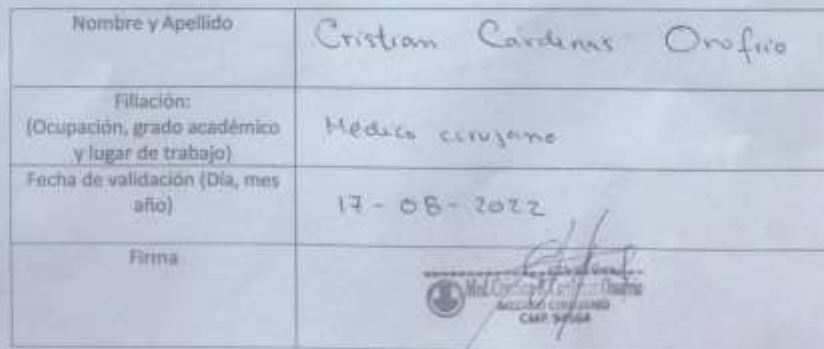 Nombre y Apellido
Cristian Cárdenas Onofrio
Filiación:
(Ocupación, grado académico
y lugar de trabajo)
Médico cirujano
Fecha de validación (Día, mes
año)
17 - 08 - 2022
Firma
MEDICO CIRUJANO
CMP.